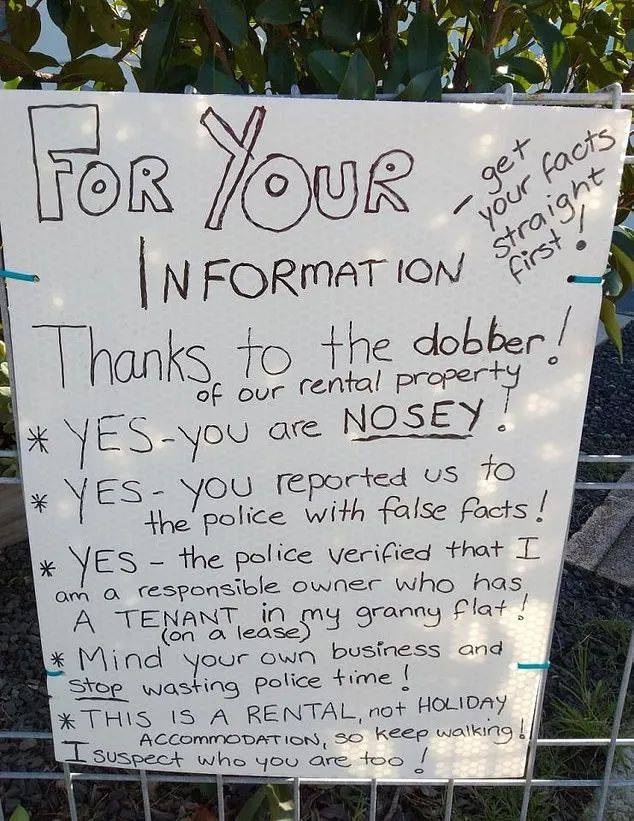 FOR YOUR
- get
your facts
straight
first!
INFORMATION
Thanks to the dobber!
of our rental property
* YES - YOU are NOSEY!
* YES - YOU reported us to
the police with false facts!
* YES - the police verified that I
am a responsible owner who has
A TENANT in my granny flat!
(on a lease)
* Mind your own business and
stop wasting police time!
* THIS IS A RENTAL, not HOLIDAY
ACCOMMODATION, so keep walking!
I suspect who you are too!